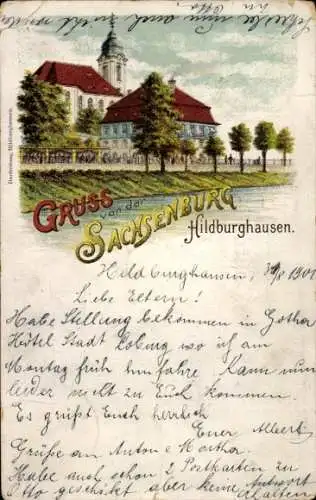 Schicke nun auch nicht
ihn Otto,
Gruss
von der
Sachsenburg
Hildburghausen.
Hildburghausen, 30/8 1901
Liebe Eltern!
Habe Stellung bekommen in Gotha
Hôtel Stadt Coburg wo ich am
Montag früh hinfahre Kann nun
leider nicht zu Euch kommen.
Es grüßt Euch herzlich
Euer Albert
Grüße an Anton u Martha.
Habe auch schon 2 Postkarten zu
Otto geschickt aber keine Antwort
erhalten